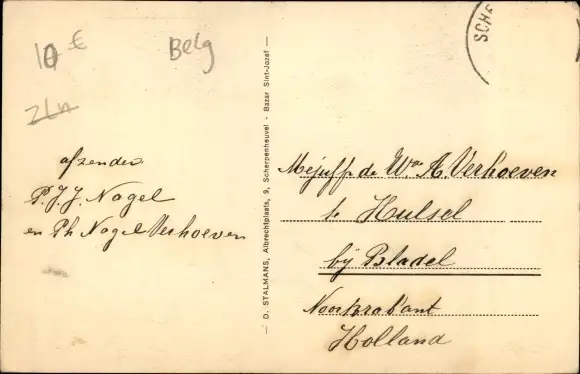 10 €
Belg
Zln
afzender
P.J.J. Nagel
en Ph Nagel Verhoeven
— D. STALMANS, Albrechtplaats, 9, Scherpenheuvel - Bazar Sint-Jozef —
SCHE
Mejuff de Wa A. Verhoeven
te Hulsel
bij Bladel
Noorbrabant
Holland